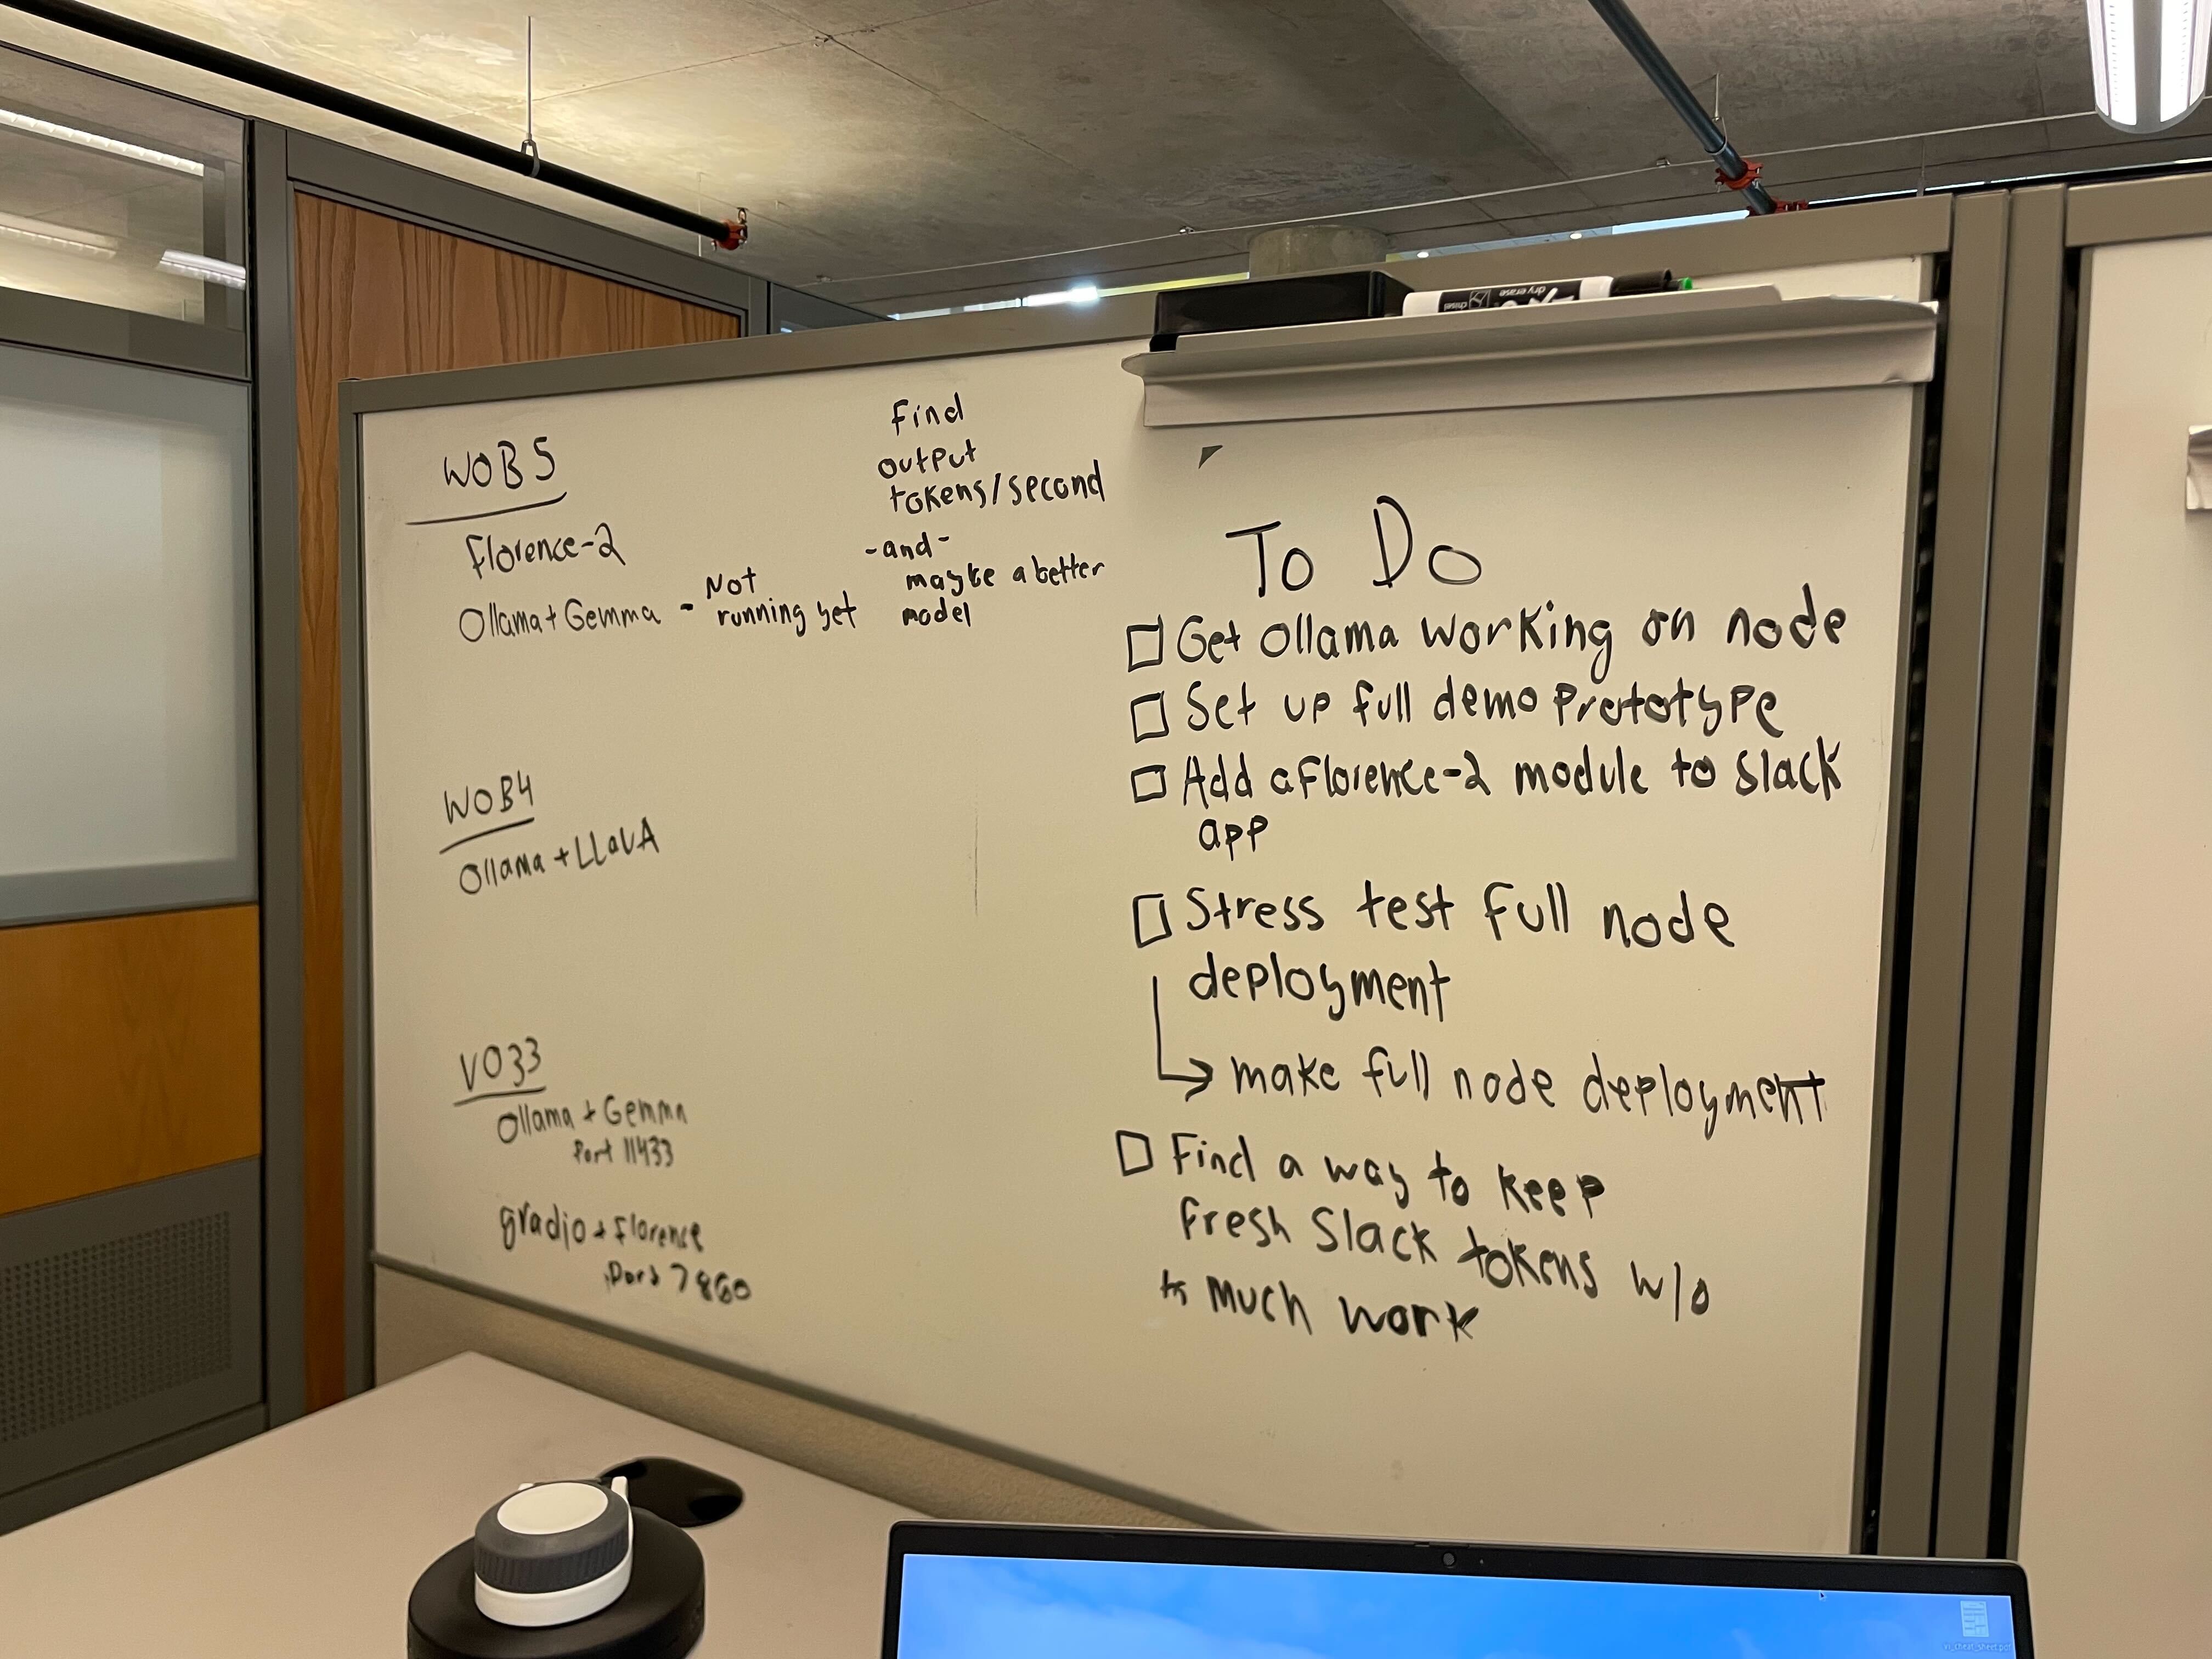 WOB5
Florence-2
Ollama + Gemma - Not
running yet
Find
output
tokens/second
-and-
maybe a better
model
WOB4
Ollama + LLaVA
VO33
Ollama + Gemma
Port 11433
gradio + Florence
Port 7860
To Do
Get Ollama working on node
Set up full demo Prototype
Add a Florence-2 module to Slack
app
Stress test full node
deployment
make full node deployment
Find a way to keep
fresh Slack tokens w/o
to much work
dry erase
chisel